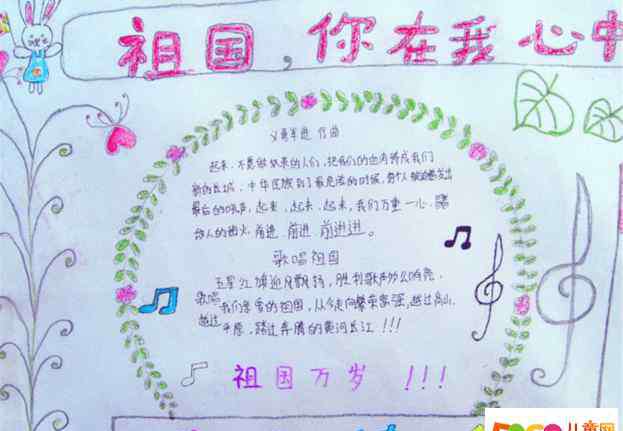 祖国，你在我心中
义勇军进 作曲
起来，不愿做奴隶的人们，把我们的血肉筑成我们
新的长城，中华民族到了最危险的时候，每个人被迫着发出
最后的吼声，起来，起来，起来，我们万重一心，冒
敌人的炮火，前进，前进，前进进。
歌唱祖国
五星红旗迎风飘扬，胜利歌声多么响亮，
歌唱我们亲爱的祖国，从今走向繁荣富强，越过高山，
越过平原，跨过奔腾的黄河长江！！！
祖国万岁！！！
儿童网